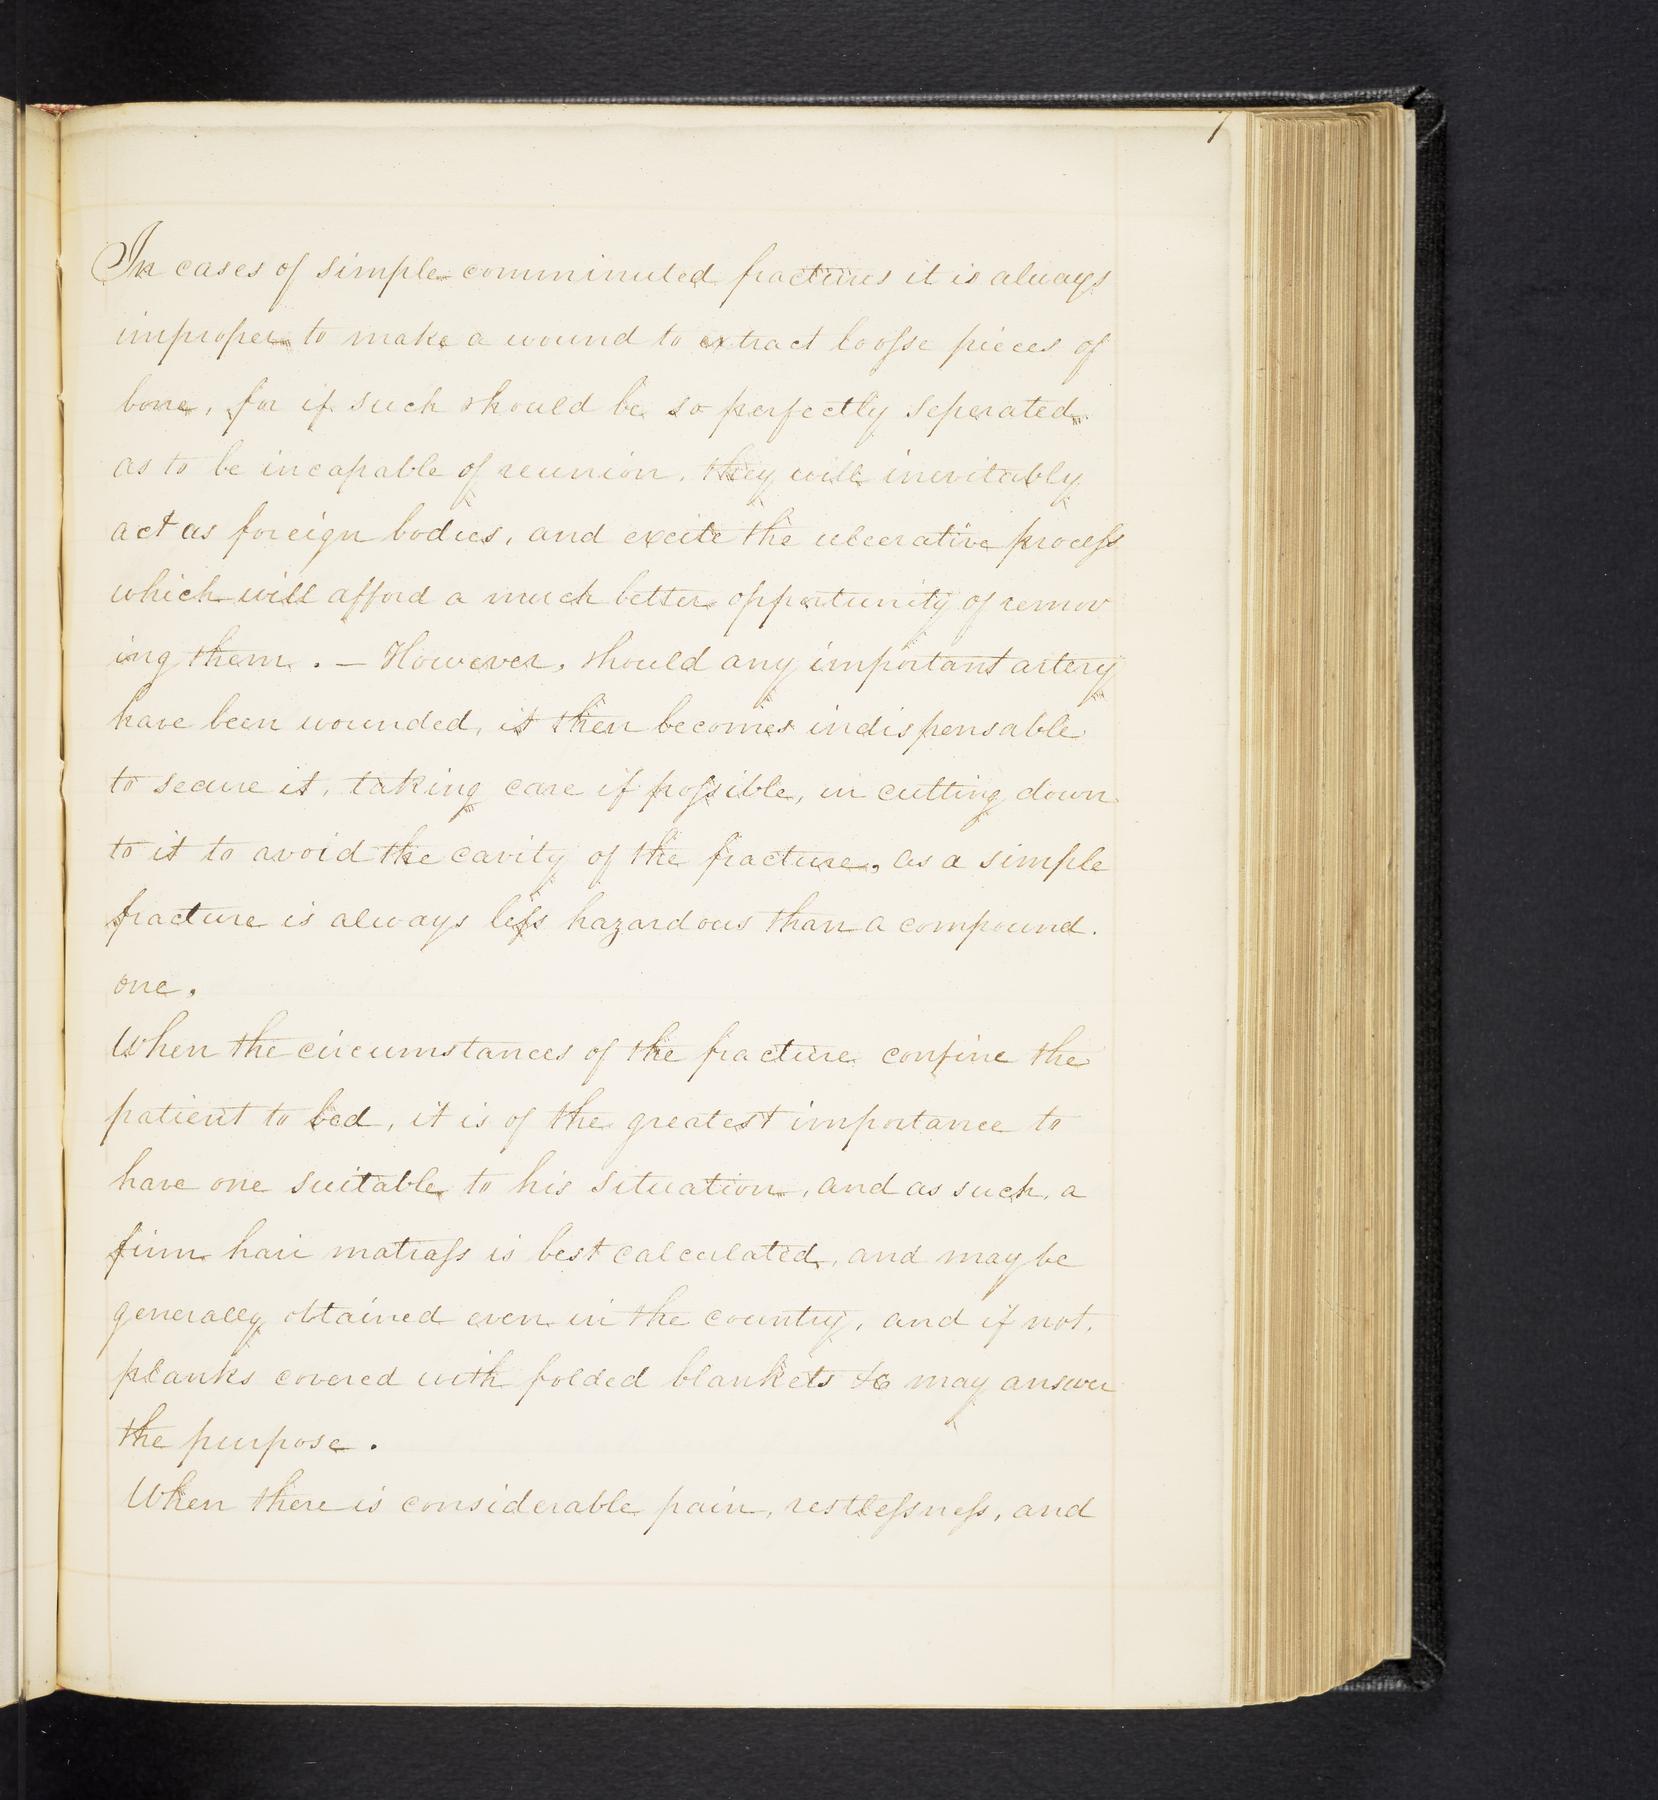 1
In cases of simple comminuted fractures it is always
improper to make a wound to extract loosse pieces of
bone, for if such should be so perfectly seperated
as to be incapable of reunion, they will inevitably
act as foreign bodies, and excite the ulcerative process
which will afford a much better opportunity of remov
ing them. — However, should any important artery
have been wounded, it then becomes indispensable
to secure it, taking care if possible, in cutting down
to it to avoid the cavity of the fracture, as a simple
fracture is always less hazardous than a compound.
one.
When the circumstances of the fracture confine the
patient to bed, it is of the greatest importance to
have one suitable to his situation, and as such, a
firm hair matrass is best calculated, and may be
generally obtained even in the country, and if not,
planks covered with folded blankets &c may answer
the purpose.
When there is considerable pain, restlessness, and